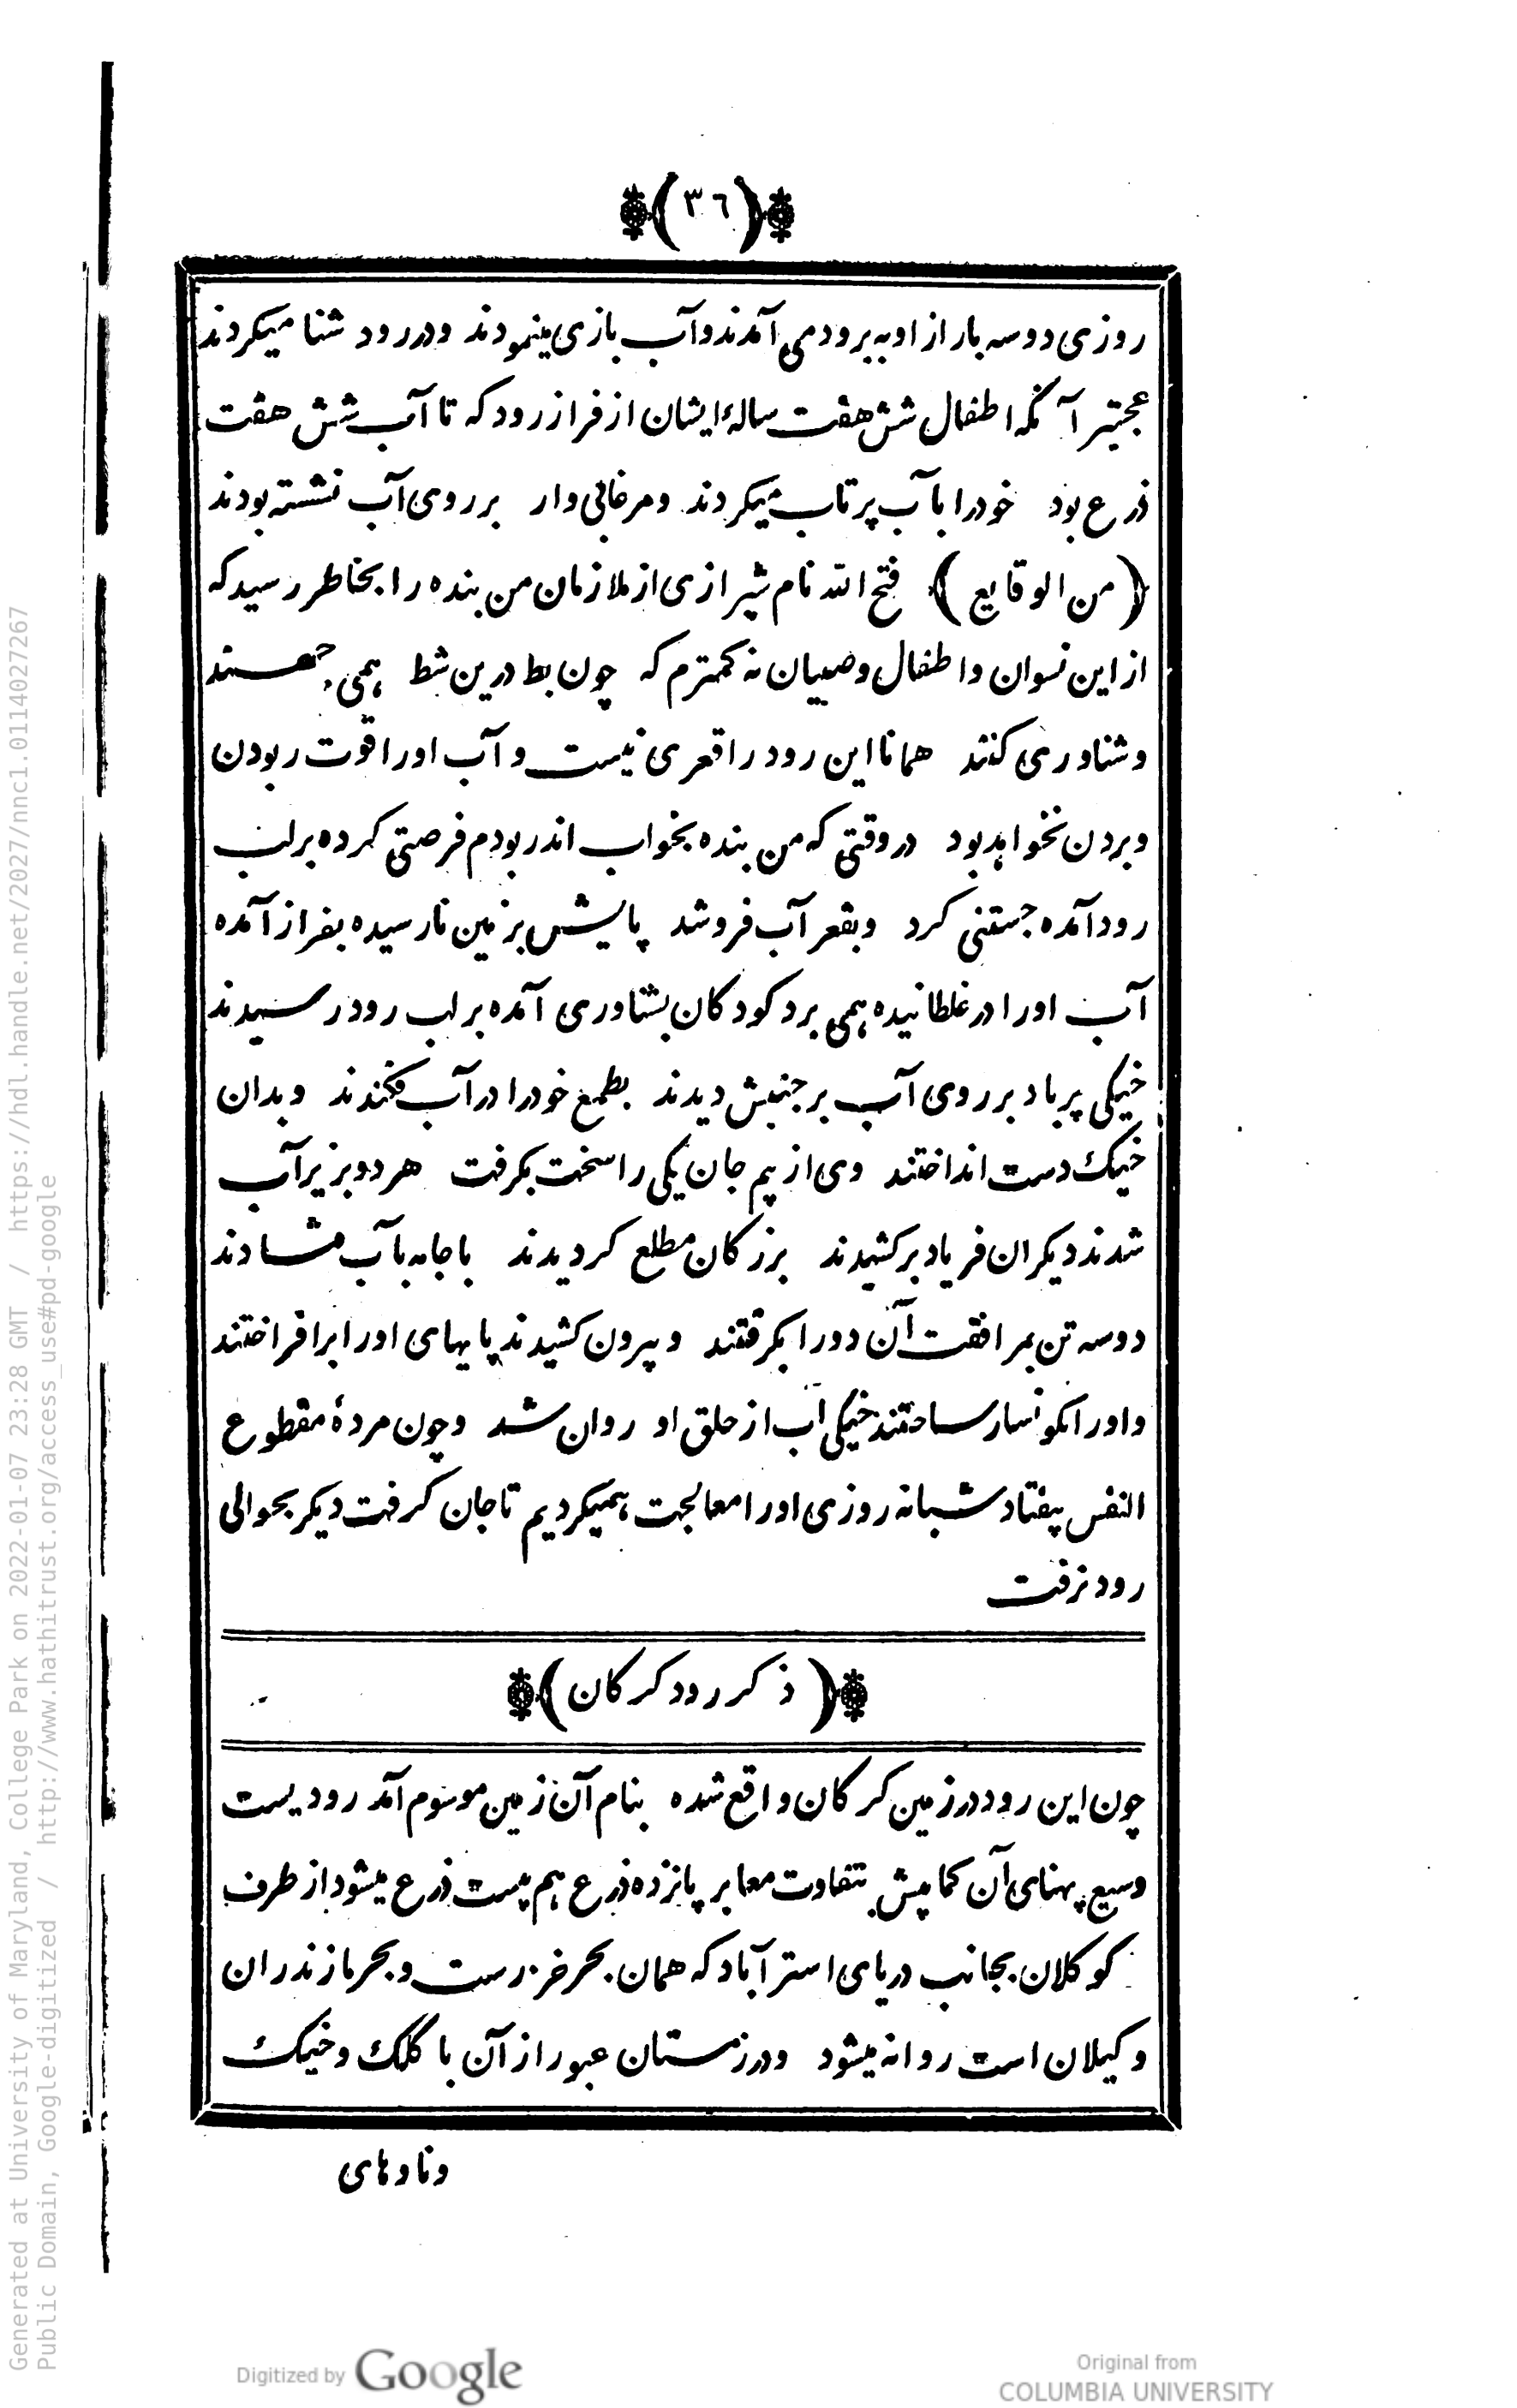 (٣٦)
روزی دوسه بار از اوبه برود می آمدند وآب بازی مینمودند ودر رود شنا میکردند
عجبتر آنکه اطفال شش هفت سالهٔ ایشان از فراز رود که تا آب شش هفت
ذرع بود خودرا بآب پرتاب میکردند ومرغابی وار بر روی آب نشسته بودند
(من الوقایع) فتح الله نام شیرازی از ملازمان من بنده را بخاطر رسید که
از این نسوان واطفال وصبیان نه کمترم که چون بط درین شط همی جهند
وشناوری کنند همانا این رود را قعری نیست وآب اورا قوت ربودن
وبردن نخواهد بود در وقتی که من بنده بخواب اندر بودم فرصتی کرده برلب
رود آمده جستنی کرد وبقعر آب فروشد پایش بزمین نارسیده بفراز آمده
آب اورا در غلطانیده همی برد کودکان بشناوری آمده برلب رود رسیدند
خیکی پرباد بر روی آب برجنبش دیدند بطمع خودرا در آب فکندند وبدان
خیک دست انداختند وی از بیم جان یکی را سخت بکرفت هردو بزیر آب
شدند دیکران فریاد برکشیدند بزرکان مطلع کردیدند باجامه بآب فشادند
دوسه تن بمرافقت آن دورا بکرفتند وبیرون کشیدند پایهای اورا برافراختند
واورا نکونسار ساختند خیکی آب از حلق او روان شد وچون مردهٔ مقطوع
النفس بیفتاد شبانه روزی اورا معالجت همیکردیم تا جان کرفت دیکر بحوالی
رود نرفت
(ذکر رود کرکان)
چون این رود در زمین کرکان واقع شده بنام آن زمین موسوم آمد رودیست
وسیع پهنای آن کمابیش بتفاوت معابر پانزده ذرع هم بیست ذرع میشود از طرف
کوکلان بجانب دریای استرآباد که همان بحر خزرست وبحر مازندران
وکیلان است روانه میشود ودر زمستان عبور از آن با کلک وخیک
وناوهای
Generated at University of Maryland, College Park on 2022-01-07 23:28 GMT / https://hdl.handle.net/2027/nnc1.0114027267
Public Domain, Google-digitized / http://www.hathitrust.org/access_use#pd-google
Digitized by Google
Original from
COLUMBIA UNIVERSITY